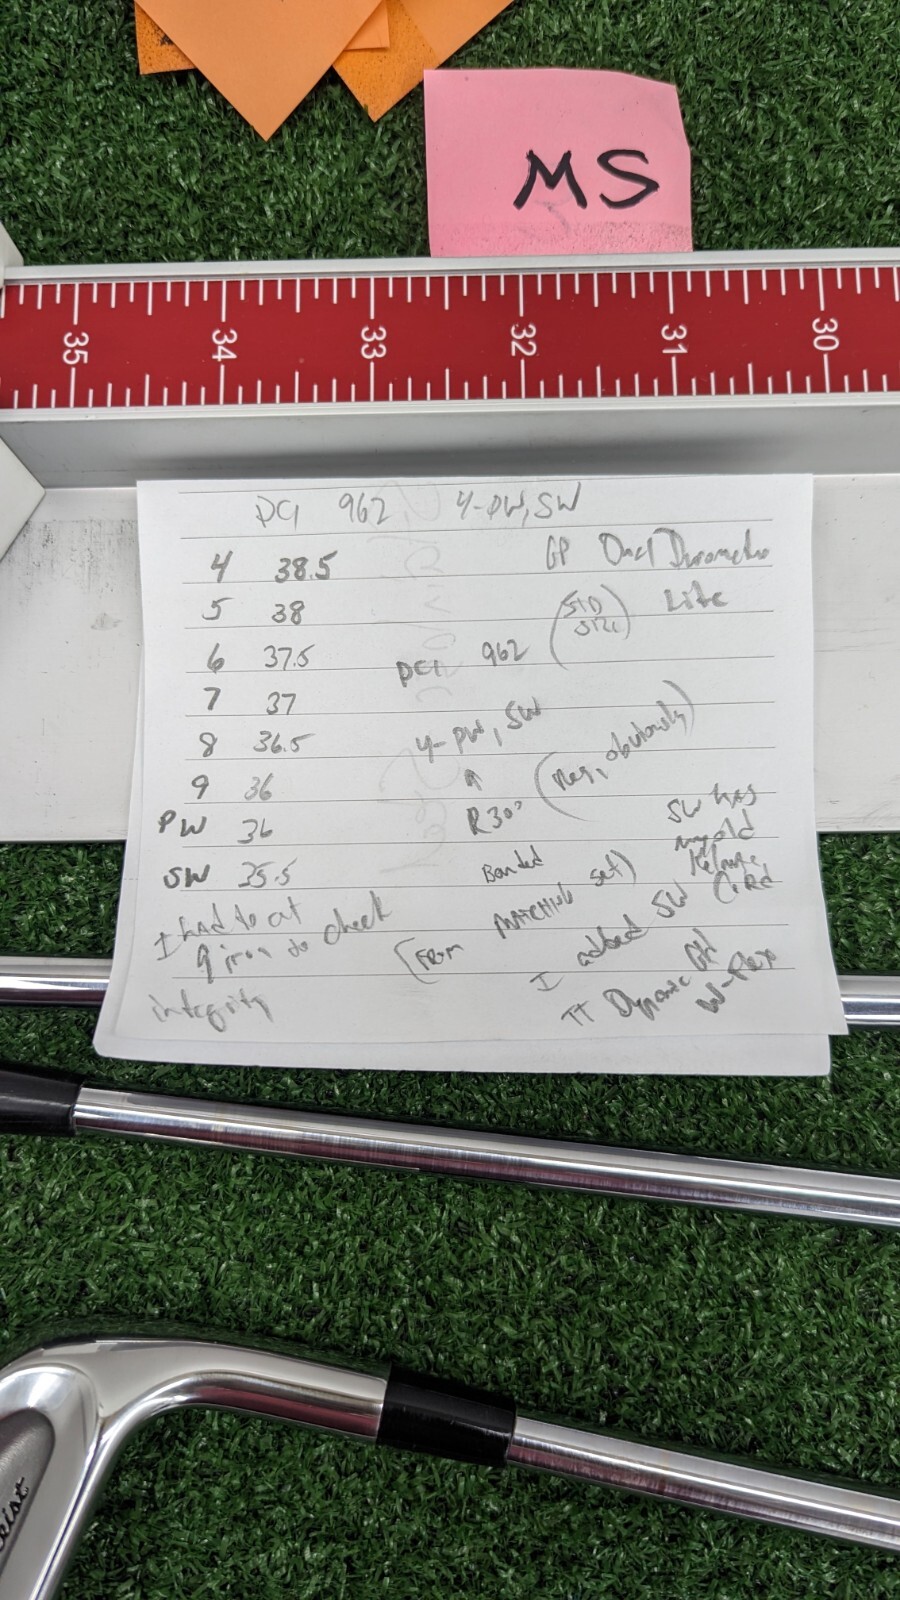 MS
35 34 33 32 31 30
DCI 962 4-PW, SW
4 38.5
GP Dual Durometer
5 38
(STD Size)
Lite
6 37.5
DCI 962
7 37
8 36.5
4-PW, SW
(Yes, obviously)
9 36
R300
PW 36
SW 35.5
Bonded
SW has
my old
Cord
(From matching set)
I had to cut
9 iron to check
integrity
I added SW
TT Dynamic Gld
W-Flex
eist